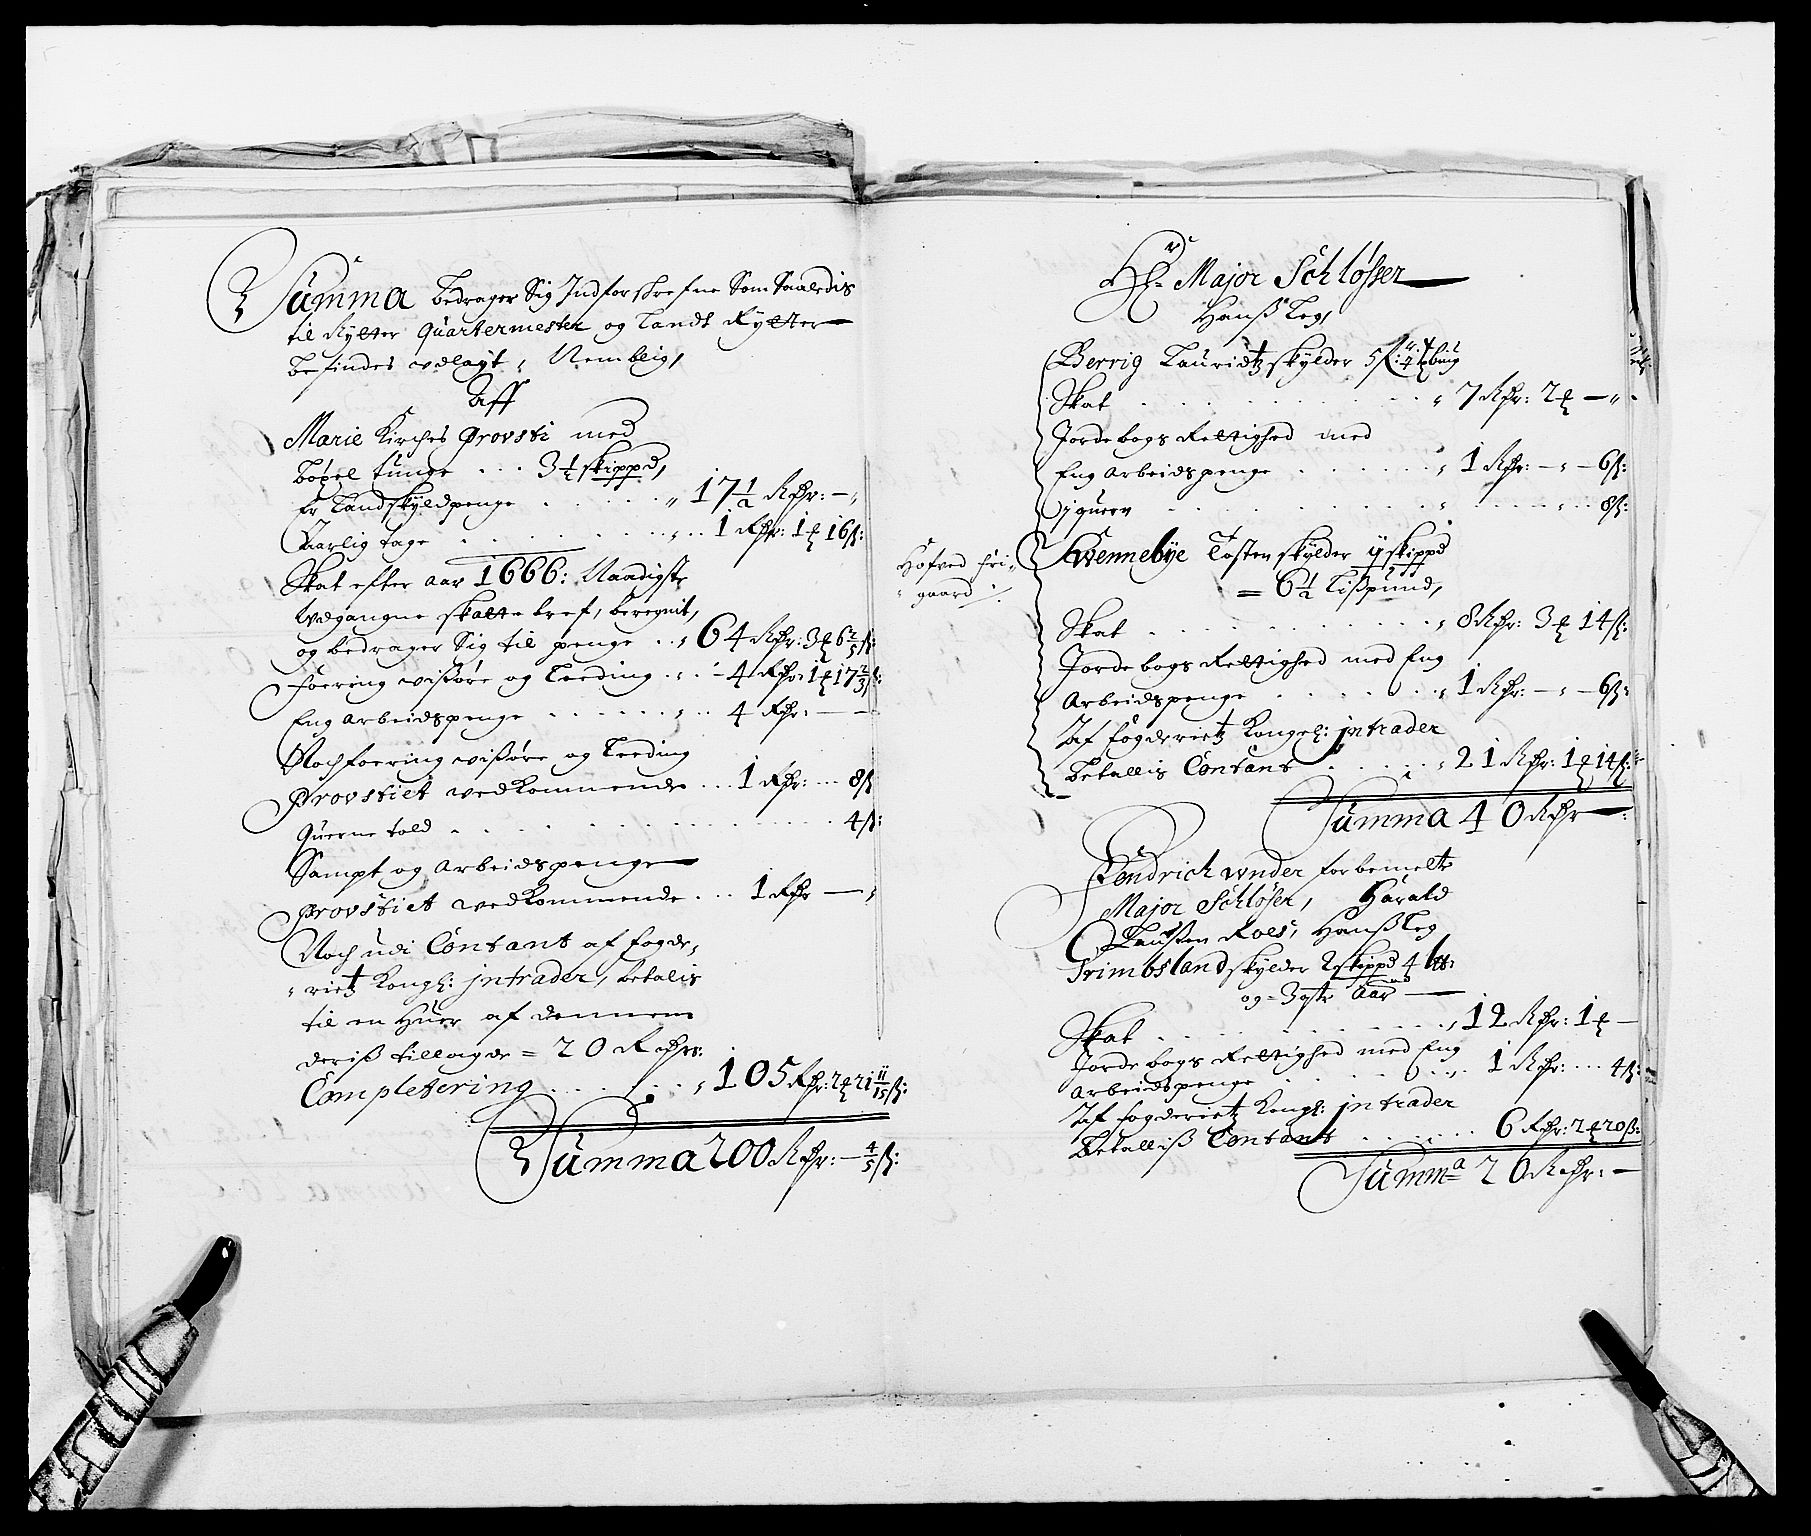 Summa bedrager Sig Indforskrefne Som Saaledis
til Rytter Quartermester og Landt Rytter
befindes udlagt, Nemblig,
Aff
Marie Kirches Provsti med
bøxel tunge ... 3½ skippd,
Er Landskyldpenge ..... 17½ Rdr: —
Aarlig tage ..... 1 Rdr: 1 16ß:
Skat efter aar 1666: Naadigst
udgangne skatte bref, beregnit,
og bedrager Sig til penge .. 64 Rdr: 3 6 2/5 ß:
Foering wißøre og Leeding ... 4 Rdr: 1 17 2/3 ß:
Eng arbeidspenge ...... 4 Rdr: — —
Noch foering wißøre og Leeding
Provstiet vedkommende ... 1 Rdr: ... 8ß
Querne told ........ 4ß:
Sampt og arbeidspenge
Provstiet vedkommende ... 1 Rdr —
Noch udi Contant af fogde,
rietz Kongl: jntrader, betalis
til en Huer af dennem
deriß tillagde = 20 Rdr:
Completering ...... 105 Rdr: 2 21 11/15 ß:
Summa 200 Rdr: — 4/5 ß:
Hr Major Schløsser
Hanß Leg,
Berrig Lauridtz skylder 5
Skat ........ 7 Rdr: 2 —
Jordebogs Rettighed med
Eng arbeidspenge ...... 1 Rdr: — — 6ß:
j quern ........ 8ß:
Hofved fri,
gaard
Swennebye Tosten skylder ij skippd
= 6½ Lißpund,
Skat ........ 8 Rdr: 3 14ß:
Jordebogs Rettighed med Eng
Arbeidspenge ...... 1 Rdr: — — 6ß:
Af fogderietz Kongl: jntrader
betallis Contant ..... 21 Rdr: 1 14ß:
Summa 40 Rdr —
Fendrich under forbemelte
Major Schløser, Harald
Laursten Roes, Hanß Leg
Trimbsland skylder 2 skippd 4
og = 3 Aar —
Skat ........ 12 Rdr: 1 —
Jordebogs Rettighed med Eng
Arbeidspenge ...... 1 Rdr: ... 4ß:
Af fogderietz Kongl: jntrader
Betalliß Contant ...... 6 Rdr: 2 20ß:
Summa 20 Rdr: —